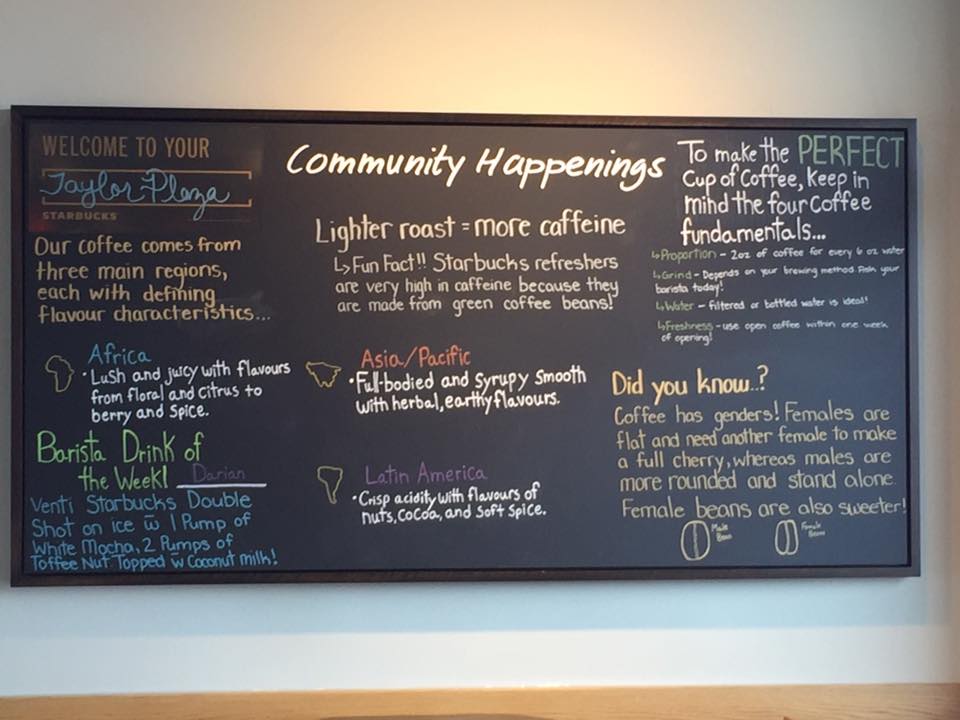 WELCOME TO YOUR
Taylor Plaza
STARBUCKS
Our coffee comes from
three main regions,
each with defining
flavour characteristics...
Africa
• Lush and juicy with flavours
from floral and citrus to
berry and spice.
Barista Drink of
the Week! Darian
Venti Starbucks Double
Shot on ice w̅ 1 Pump of
White Mocha, 2 Pumps of
Toffee Nut Topped w̅ Coconut milk!
Community Happenings
Lighter roast = more caffeine
↳ Fun Fact!! Starbucks refreshers
are very high in caffeine because they
are made from green coffee beans!
Asia/Pacific
• Full-bodied and Syrupy Smooth
with herbal, earthy flavours.
Latin America
• Crisp acidity with flavours of
nuts, cocoa, and soft spice.
To make the PERFECT
Cup of Coffee, Keep in
mind the four coffee
fundamentals...
↳ Proportion - 2oz of coffee for every 6 oz water
↳ Grind - Depends on your brewing method. Ask your
barista today!
↳ Water - filtered or bottled water is ideal!
↳ Freshness - use open coffee within one week
of opening!
Did you know..?
Coffee has genders! Females are
flat and need another female to make
a full cherry, whereas males are
more rounded and stand alone.
Female beans are also sweeter!
Male
Bean
Female
Beans